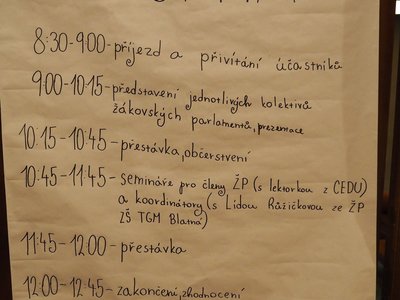 8:30-9:00-příjezd a přivítání účastníků
9:00-10:15-představení jednotlivých kolektivů
žákovských parlamentů, prezentace
10:15-10:45-přestávka, občerstvení
10:45-11:45-semináře pro členy ŽP (s lektorkou z CEDU)
a koordinátory (s Lídou Růžičkovou ze ŽP
ZŠ TGM Blatná)
11:45-12:00-přestávka
12:00-12:45-zakončení, zhodnocení